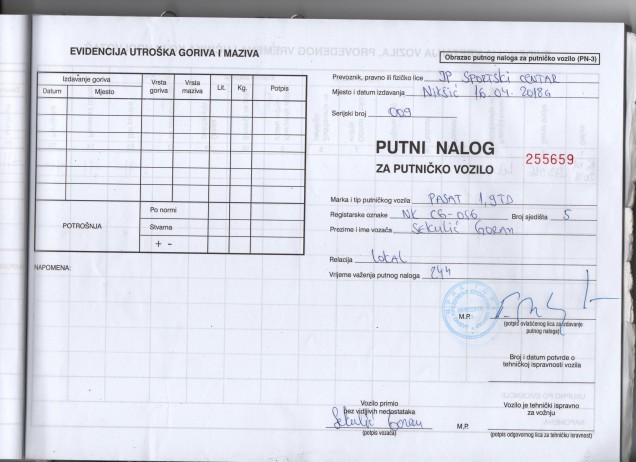 EVIDENCIJA UTROŠKA GORIVA I MAZIVA
Izdavanje goriva
Datum Mjesto
Vrsta goriva
Vrsta maziva
Lit.
Kg.
Potpis
POTROŠNJA
Po normi
Stvarna
+ -
NAPOMENA:
Obrazac putnog naloga za putničko vozilo (PN-3)
Prevoznik, pravno ili fizičko lice JP SPORTSKI CENTAR
Mjesto i datum izdavanja Nikšić 16.04.2018g
Serijski broj 009
PUTNI NALOG
ZA PUTNIČKO VOZILO
255659
Marka i tip putničkog vozila PASAT 1,9TD
Registarske oznake NK CG-056 Broj sjedišta 5
Prezime i ime vozača SEKULIĆ GORAN
Relacija LOCAL
Vrijeme važenja putnog naloga 24h
M.P.
(potpis ovlašćenog lica za izdavanje
putnog naloga)
Broj i datum potvrde o
tehničkoj ispravnosti vozila
Vozilo primio
bez vidljivih nedostataka
Sekulić Goran
(potpis vozača)
M.P.
Vozilo je tehnički ispravno
za vožnju
(potpis odgovornog lica za tehničku ispravnost)